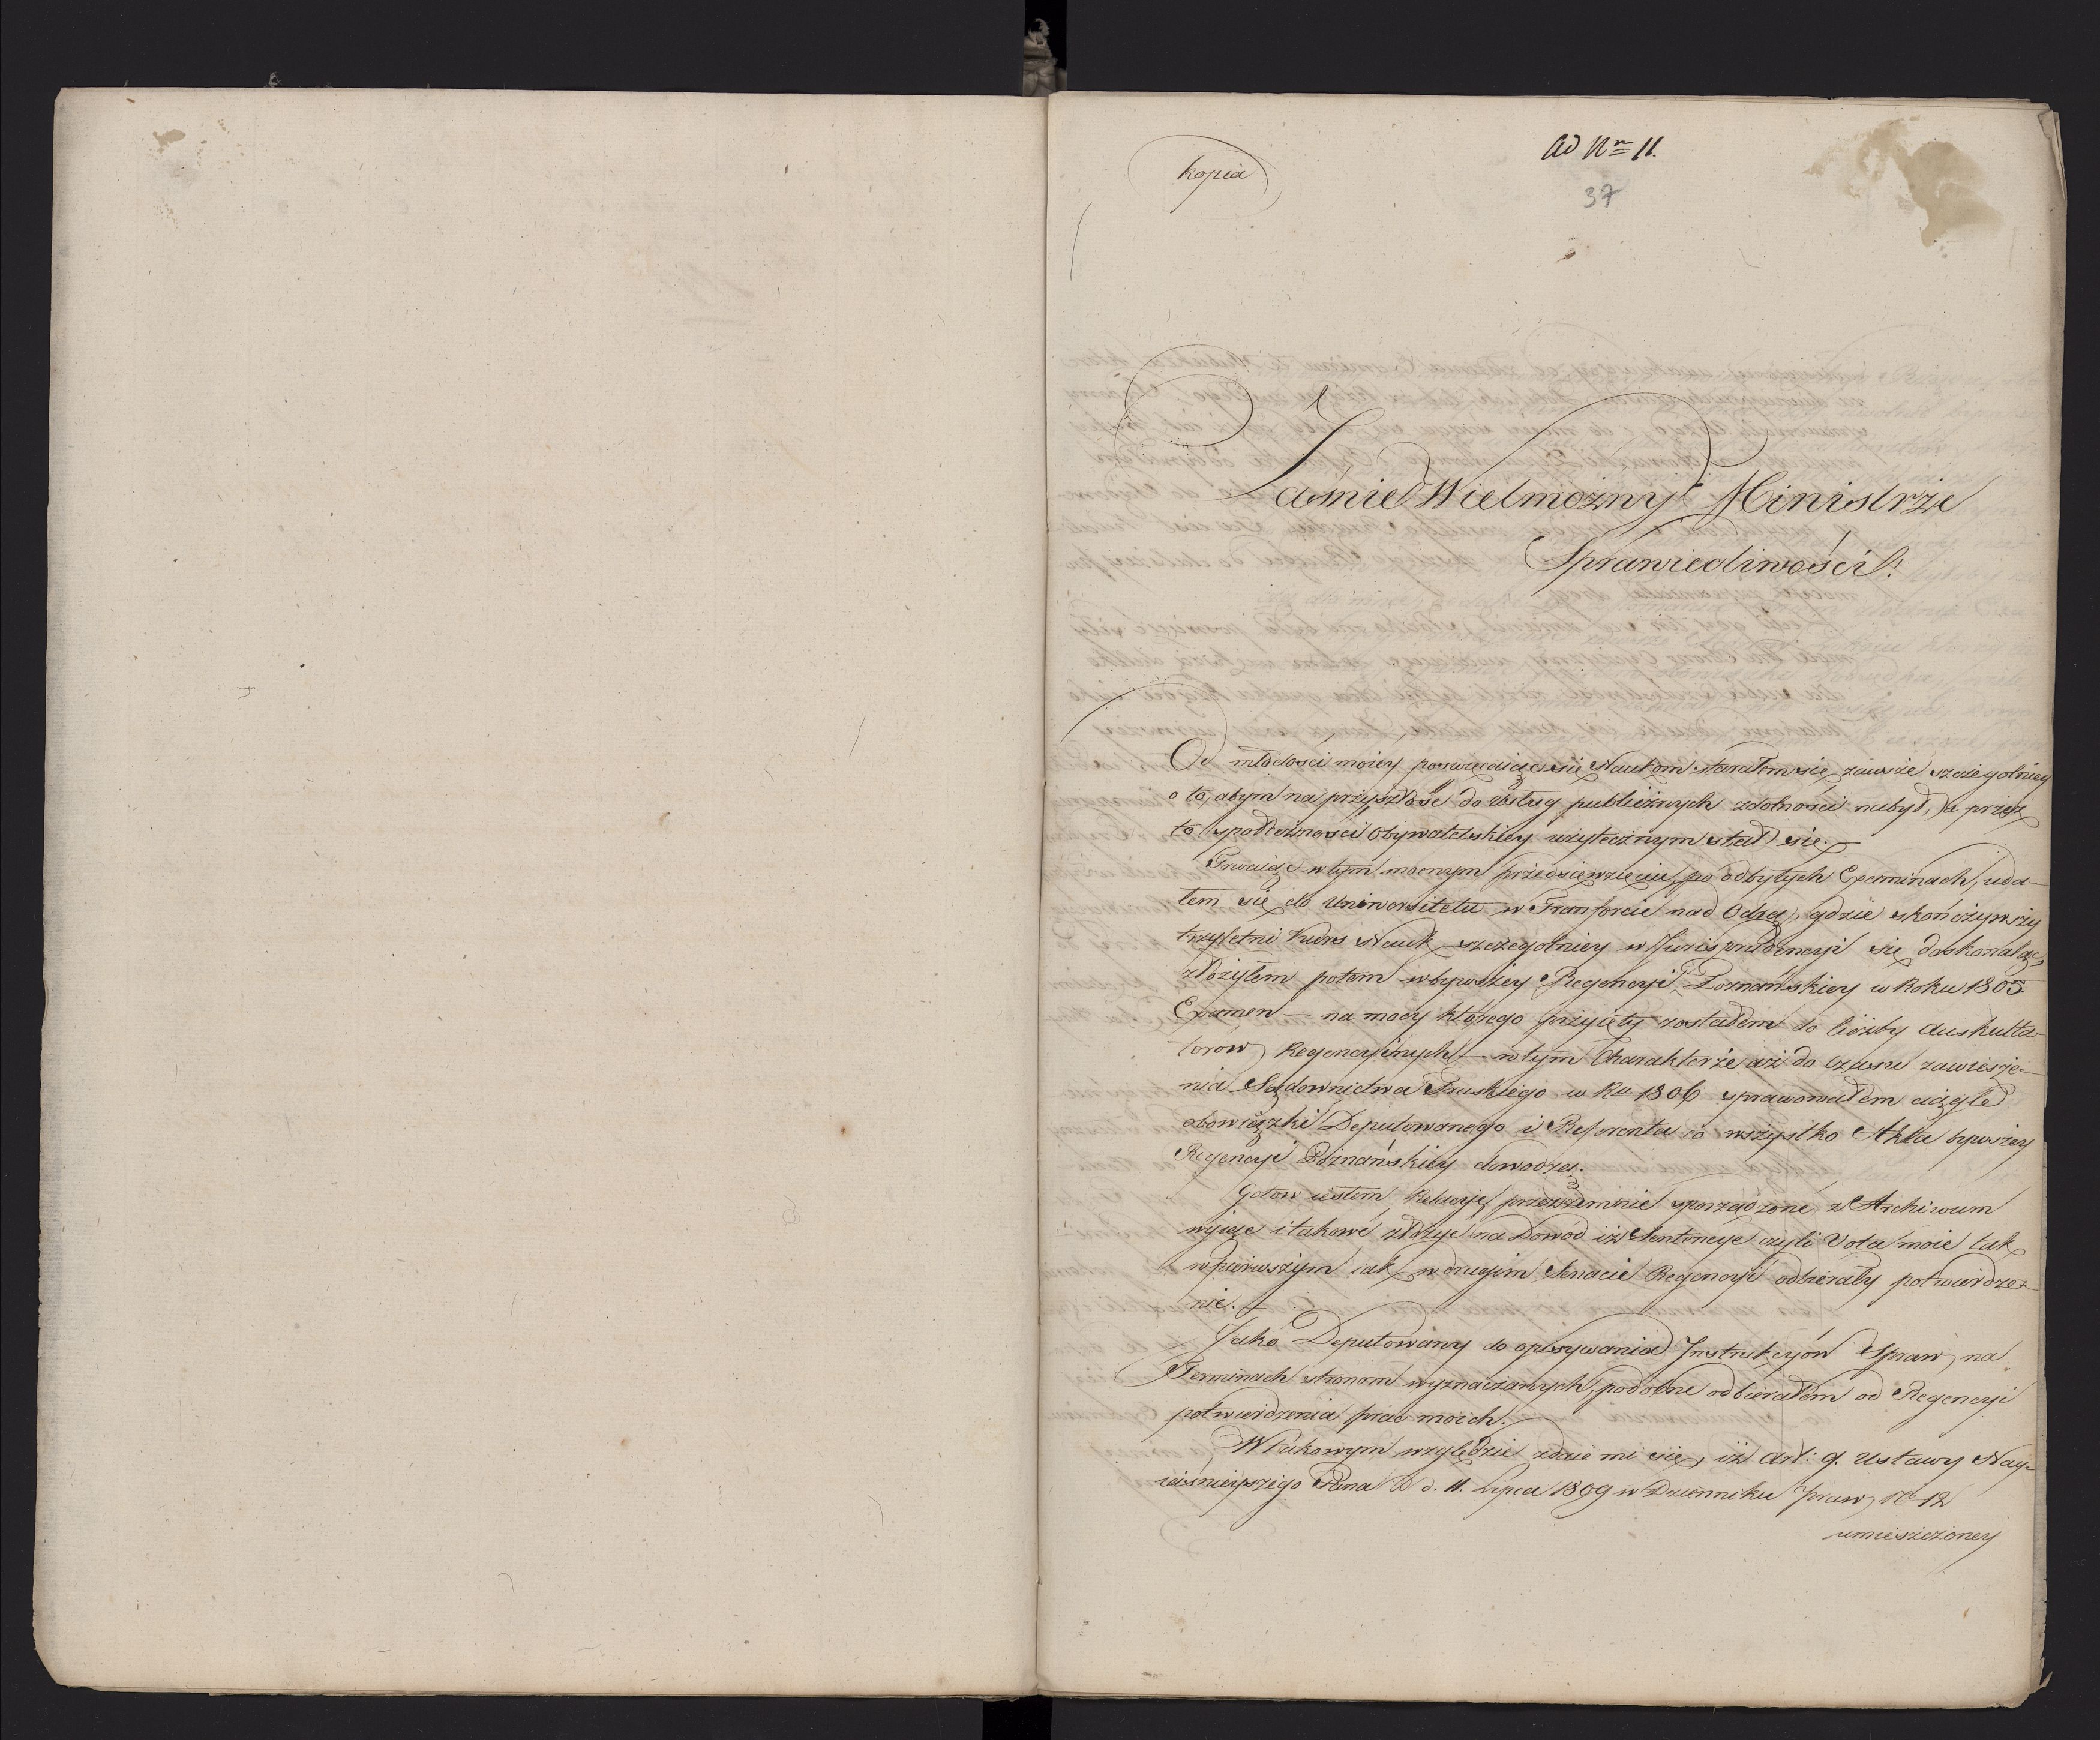 kopia
Ad Nrm 11.
37
Jaśnie Wielmożny Ministrze
Sprawiedliwości!
Od młodości moiey poswięcaiąc się Naukom starałem się zawsze szczegolniey
o to, abym na przyszłość do usług publicznych zdolności nabył, a przez
to społeczności Obywatelskiey użytecznym stał się.
Trwaiąc w tym mocnym przedsięwzięciu, po odbytych Examinach, uda-
łem się do Uniwersitetu w Franforcie nad Odrą, gdzie skończywszy
trzyletni Kurs Nauk szczegolniey w Jurisprudencyi się doskonaląc,
złożyłem potem w bywszey Regencyi Poznańskiey w Roku 1805
Examen — na mocy którego przyięty zostałem do liczby Auskulta-
torow Regencyinych — w tym Charakterze aż do czasu zawiesze-
nia Sądownictwa Pruskiego w Ru 1806 sprawowałem ciągle
obowiązki Deputowanego i Referenta co wszystko Akta bywszey
Regencyi Poznańskiey dowodzą.
Gotow iestem Relacye przezemnie sporządzone z Archiwum
wyiąć i takowe złożyć na Dowód iż Sentencye czyli Vota moie tak
w pierwszym iak w drugim Senacie Regencyi odbierały potwierdze-
nie. —
Jako Deputowany do opisywania Instrukcyów Spraw, na
Terminach stronom wyznaczanych, podobne odbierałem od Regencyi
potwierdzenia prac moich.
W takowym względzie zdaie mi się, iż Art: 9. Ustawy Nay-
iaśnieyszego Pana D. d. 11. Lipca 1809 w Dzienniku Praw No 12
umieszczoney